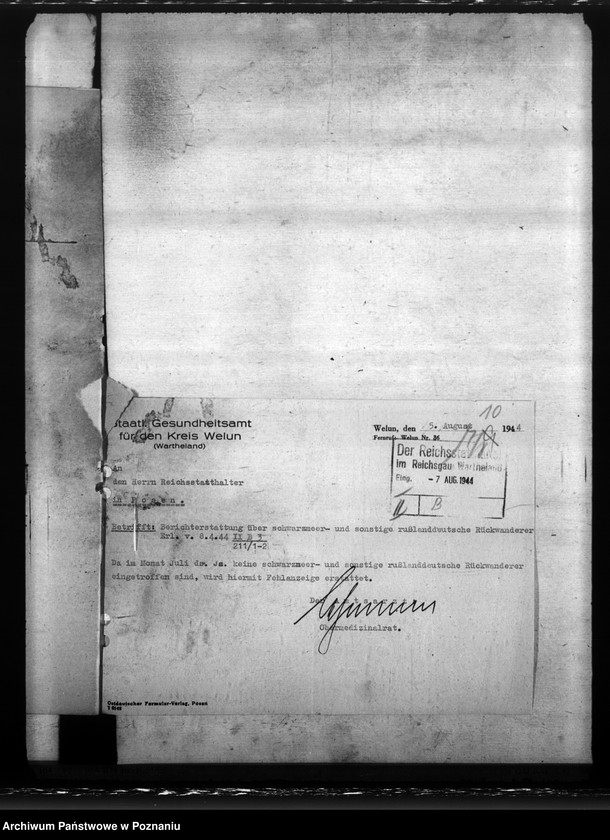 10
Staatl. Gesundheitsamt
für den Kreis Welun
(Wartheland)
Welun, den 5. August 1944
Fernruf: Welun Nr. 36
Der Reichsstatthalter
im Reichsgau Wartheland
Eing. - 7 AUG. 1944
II B
An
den Herrn Reichsstatthalter
in Posen.
Betrifft: Berichterstattung über schwarzmeer- und sonstige rußlanddeutsche Rückwanderer
Erl. v. 8.4.44 II B 3
211/1-2
Da im Monat Juli ds. Js. keine schwarzmeer- und sonstige rußlanddeutsche Rückwanderer
eingetroffen sind, wird hiermit Fehlanzeige erstattet.
Der Amtsarzt
Obermedizinalrat.
Ostdeutscher Formular-Verlag, Posen
Archiwum Państwowe w Poznaniu